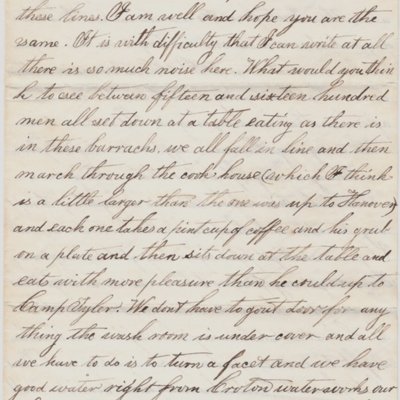 these lines. I am well and hope you are the
same. It is with difficulty that I can write at all
there is so much noise here. What would you thin
k to see between fifteen and sixteen hundred
men all set down at a table eating as there is
in these barrachs, we all fall in line and then
march through the cook house (which I think
is a little larger than the one was up to Hanover)
and each one takes a pint cup of coffee and his grub
on a plate and then sits down at the table and
eats with more pleasure than he could up to
Camp Tyler. We dont have to go out door for any
thing the wash room is under cover and all
we have to do is to turn a facit and we have
good water right from Croton water works our